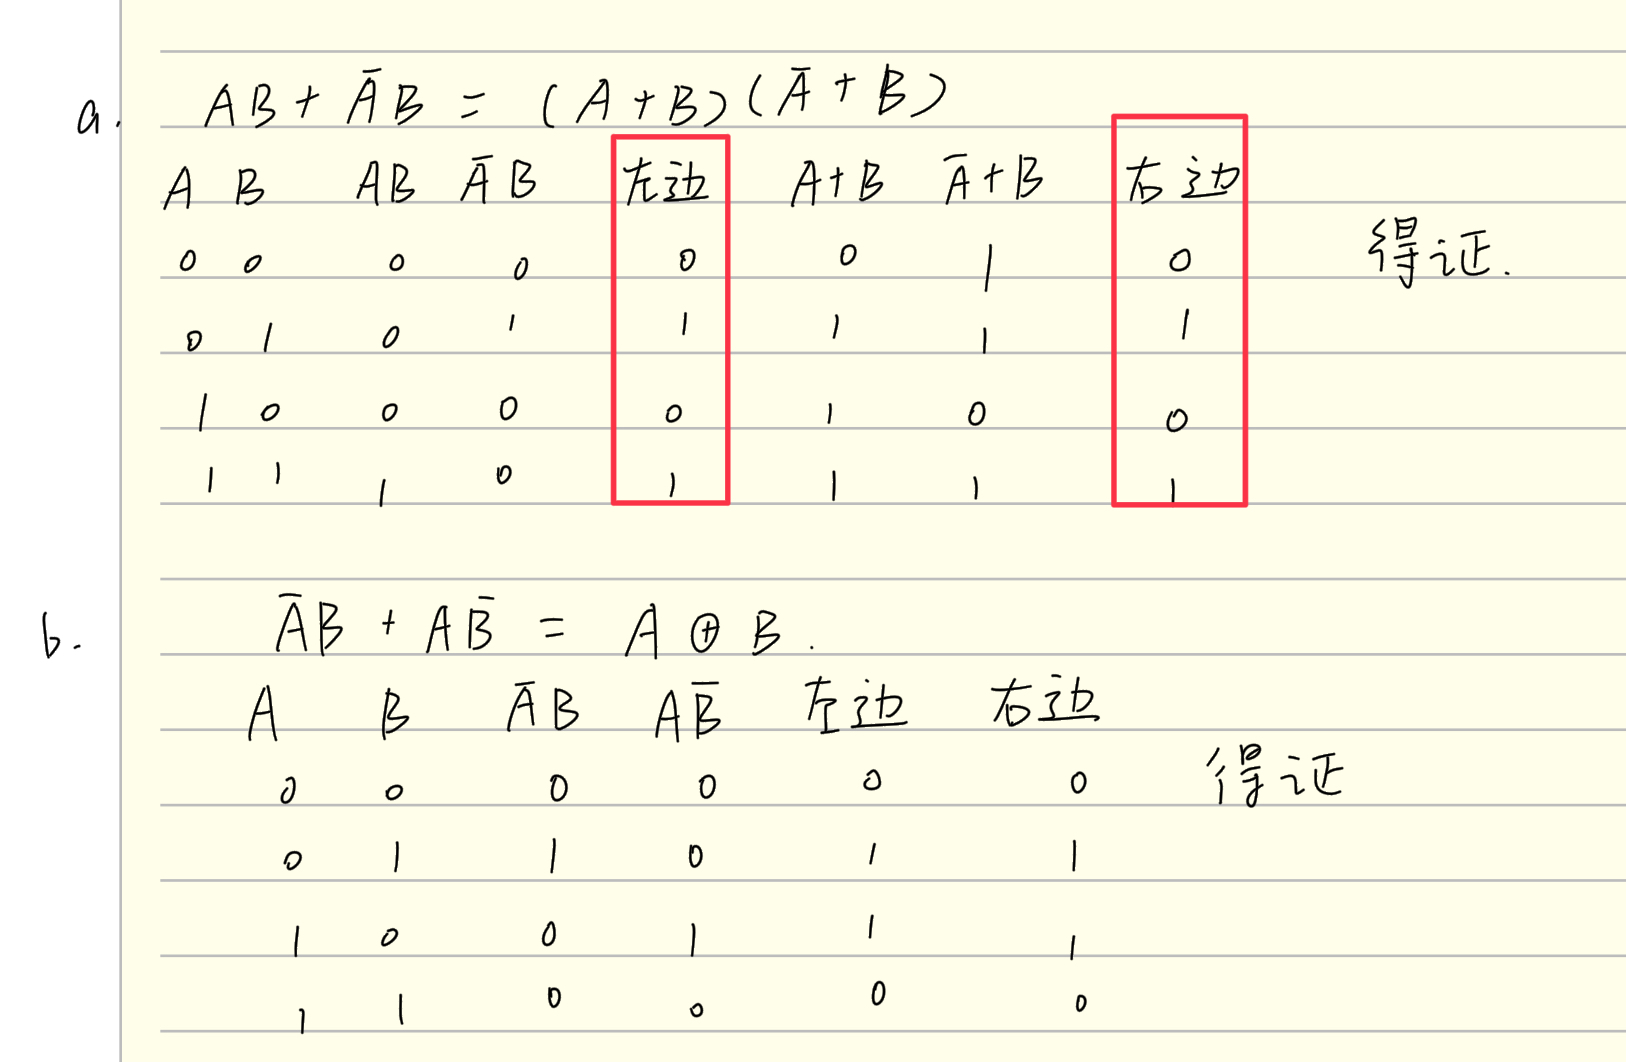 a. AB + A̅B = (A+B)(A̅+B)
A B AB A̅B 左边 A+B A̅+B 右边
0 0 0 0 0 0 1 0 得证.
0 1 0 1 1 1 1 1
1 0 0 0 0 1 0 0
1 1 1 0 1 1 1 1
b. A̅B + AB̅ = A ⊕ B.
A B A̅B AB̅ 左边 右边
0 0 0 0 0 0 得证
0 1 1 0 1 1
1 0 0 1 1 1
1 1 0 0 0 0